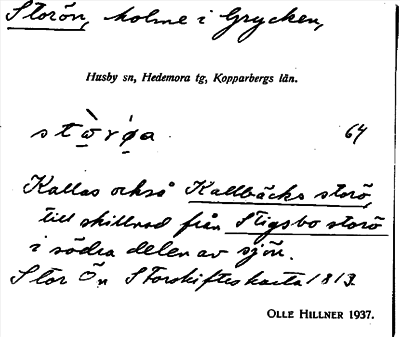 Storön, holme i Grycken,
Husby sn, Hedemora tg, Kopparbergs län.
stòrø̀a 64
Kallas också Kallbäcks storö,
till skillnad från Stigsbo storö
i södra delen av sjön.
Stor Ön Storskifteskarta 1813.
OLLE HILLNER 1937.